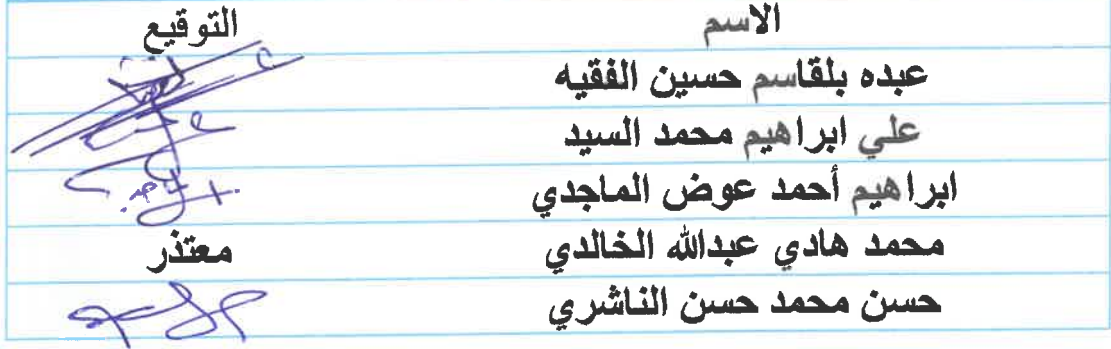 الاسم التوقيع
عبده بلقاسم حسين الفقيه
علي ابراهيم محمد السيد
ابراهيم أحمد عوض الماجدي
محمد هادي عبدالله الخالدي معتذر
حسن محمد حسن الناشري